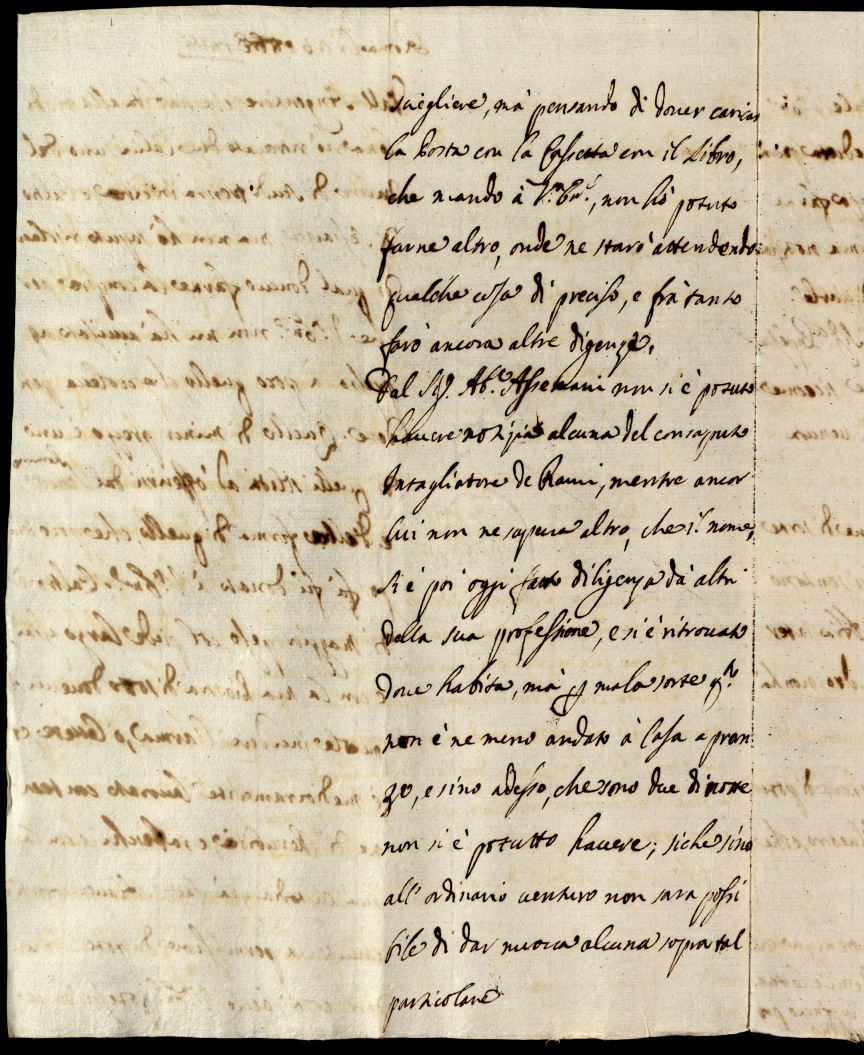 sciegliere, mà pensando di dover caricar
la Posta con la Cassetta con il Libro,
che mando à V. Em., non hò potuto
farne altro, onde ne starò attendendo
qualche cosa di preciso, e frà tanto
farò ancora altre digenze.
Dal Sig. Ab.e Assemani non si è potuto
havere notizia alcuna del consaputo
Intagliatore de Rami, mentre ancor
lui non ne sapeva altro, che il nome,
si è poi oggi fatto diligenza dà altri
della sua professione, e si è ritrovato
dove habita, mà mala sorte
non è ne meno andato à Casa a pran
zo, e sino adesso, che sono due di notte
non si è potutto havere; siche sino
all' ordinario venturo non sara possi
bile di dar nuova alcuna sopra tal
particolare